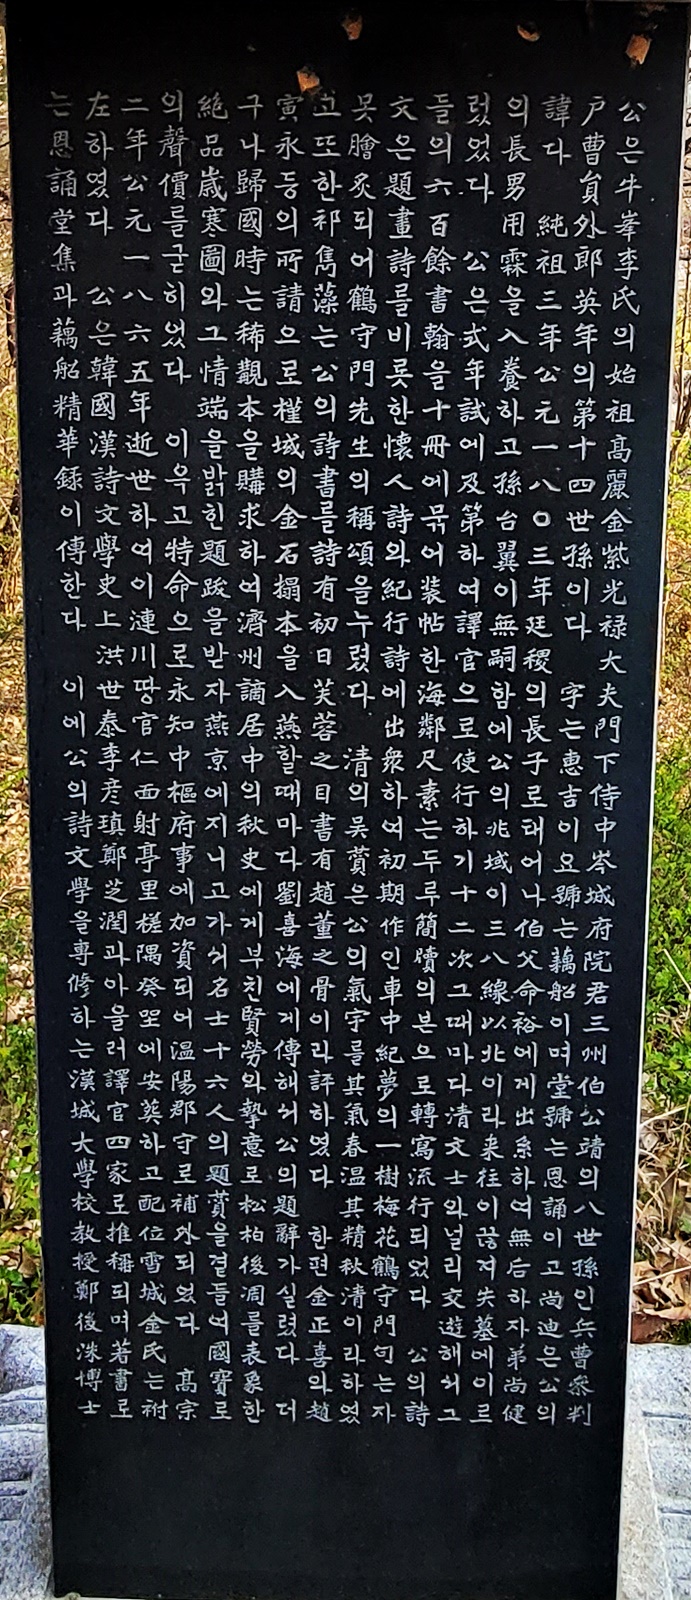 公은牛峯李氏의始祖高麗金紫光祿大夫門下侍中岑城府院君三州伯公靖의八世孫인兵曹參判
戶曹員外郎英年의第十四世孫이다 字는惠吉이요號는藕船이며堂號는恩誦이고尚迪은公의
諱다 純祖三年公元一八〇三年廷稷의長子로태어나伯父命裕에게出系하여無后하자弟尚健
의長男用霖을入養하고孫台翼이無嗣함에公의兆域이三八線以北이라来往이끊겨失墓에이르
렀었다 公은式年試에及第하여譯官으로使行하기十二次그때마다清文士와널리交遊해서그
들의六百餘書翰을十冊에묶어装帖한海鄰尺素는두루簡牘의본으로轉寫流行되었다 公의詩
文은題畫詩를비롯한懷人詩와紀行詩에出衆하여初期作인車中紀夢의一樹梅花鶴守門句는자
못膾炙되어鶴守門先生의稱頌을누렸다 清의吳贊은公의氣宇를其氣春溫其精秋清이라하였
고또한祁雋藻는公의詩書를詩有初日芙蓉之目書有趙董之骨이라評하였다 한편金正喜와趙
寅永등의所請으로槿域의金石搨本을入燕할때마다劉喜海에게傳해서公의題辭가실렸다 더
구나歸國時는稀觀本을購求하여濟州謫居中의秋史에게부친賢勞와摯意로松柏後凋를表象한
絶品歲寒圖와그情端을밝힌題跋을받자燕京에지니고가서名士十六人의題贊을곁들여國寶로
의聲價를굳히었다 이윽고特命으로永知中樞府事에加資되어溫陽郡守로補外되었다 高宗
二年公元一八六五年逝世하여이漣川땅官仁面射亭里槎隅癸坐에安葬하고配位雪城金氏는祔
左하였다 公은韓國漢詩文學史上洪世泰李彦瑱鄭芝潤과아울러譯官四家로推稱되며著書로
는恩誦堂集과藕船精華錄이傳한다 이에公의詩文學을專修하는漢城大學校教授鄭後洙博士